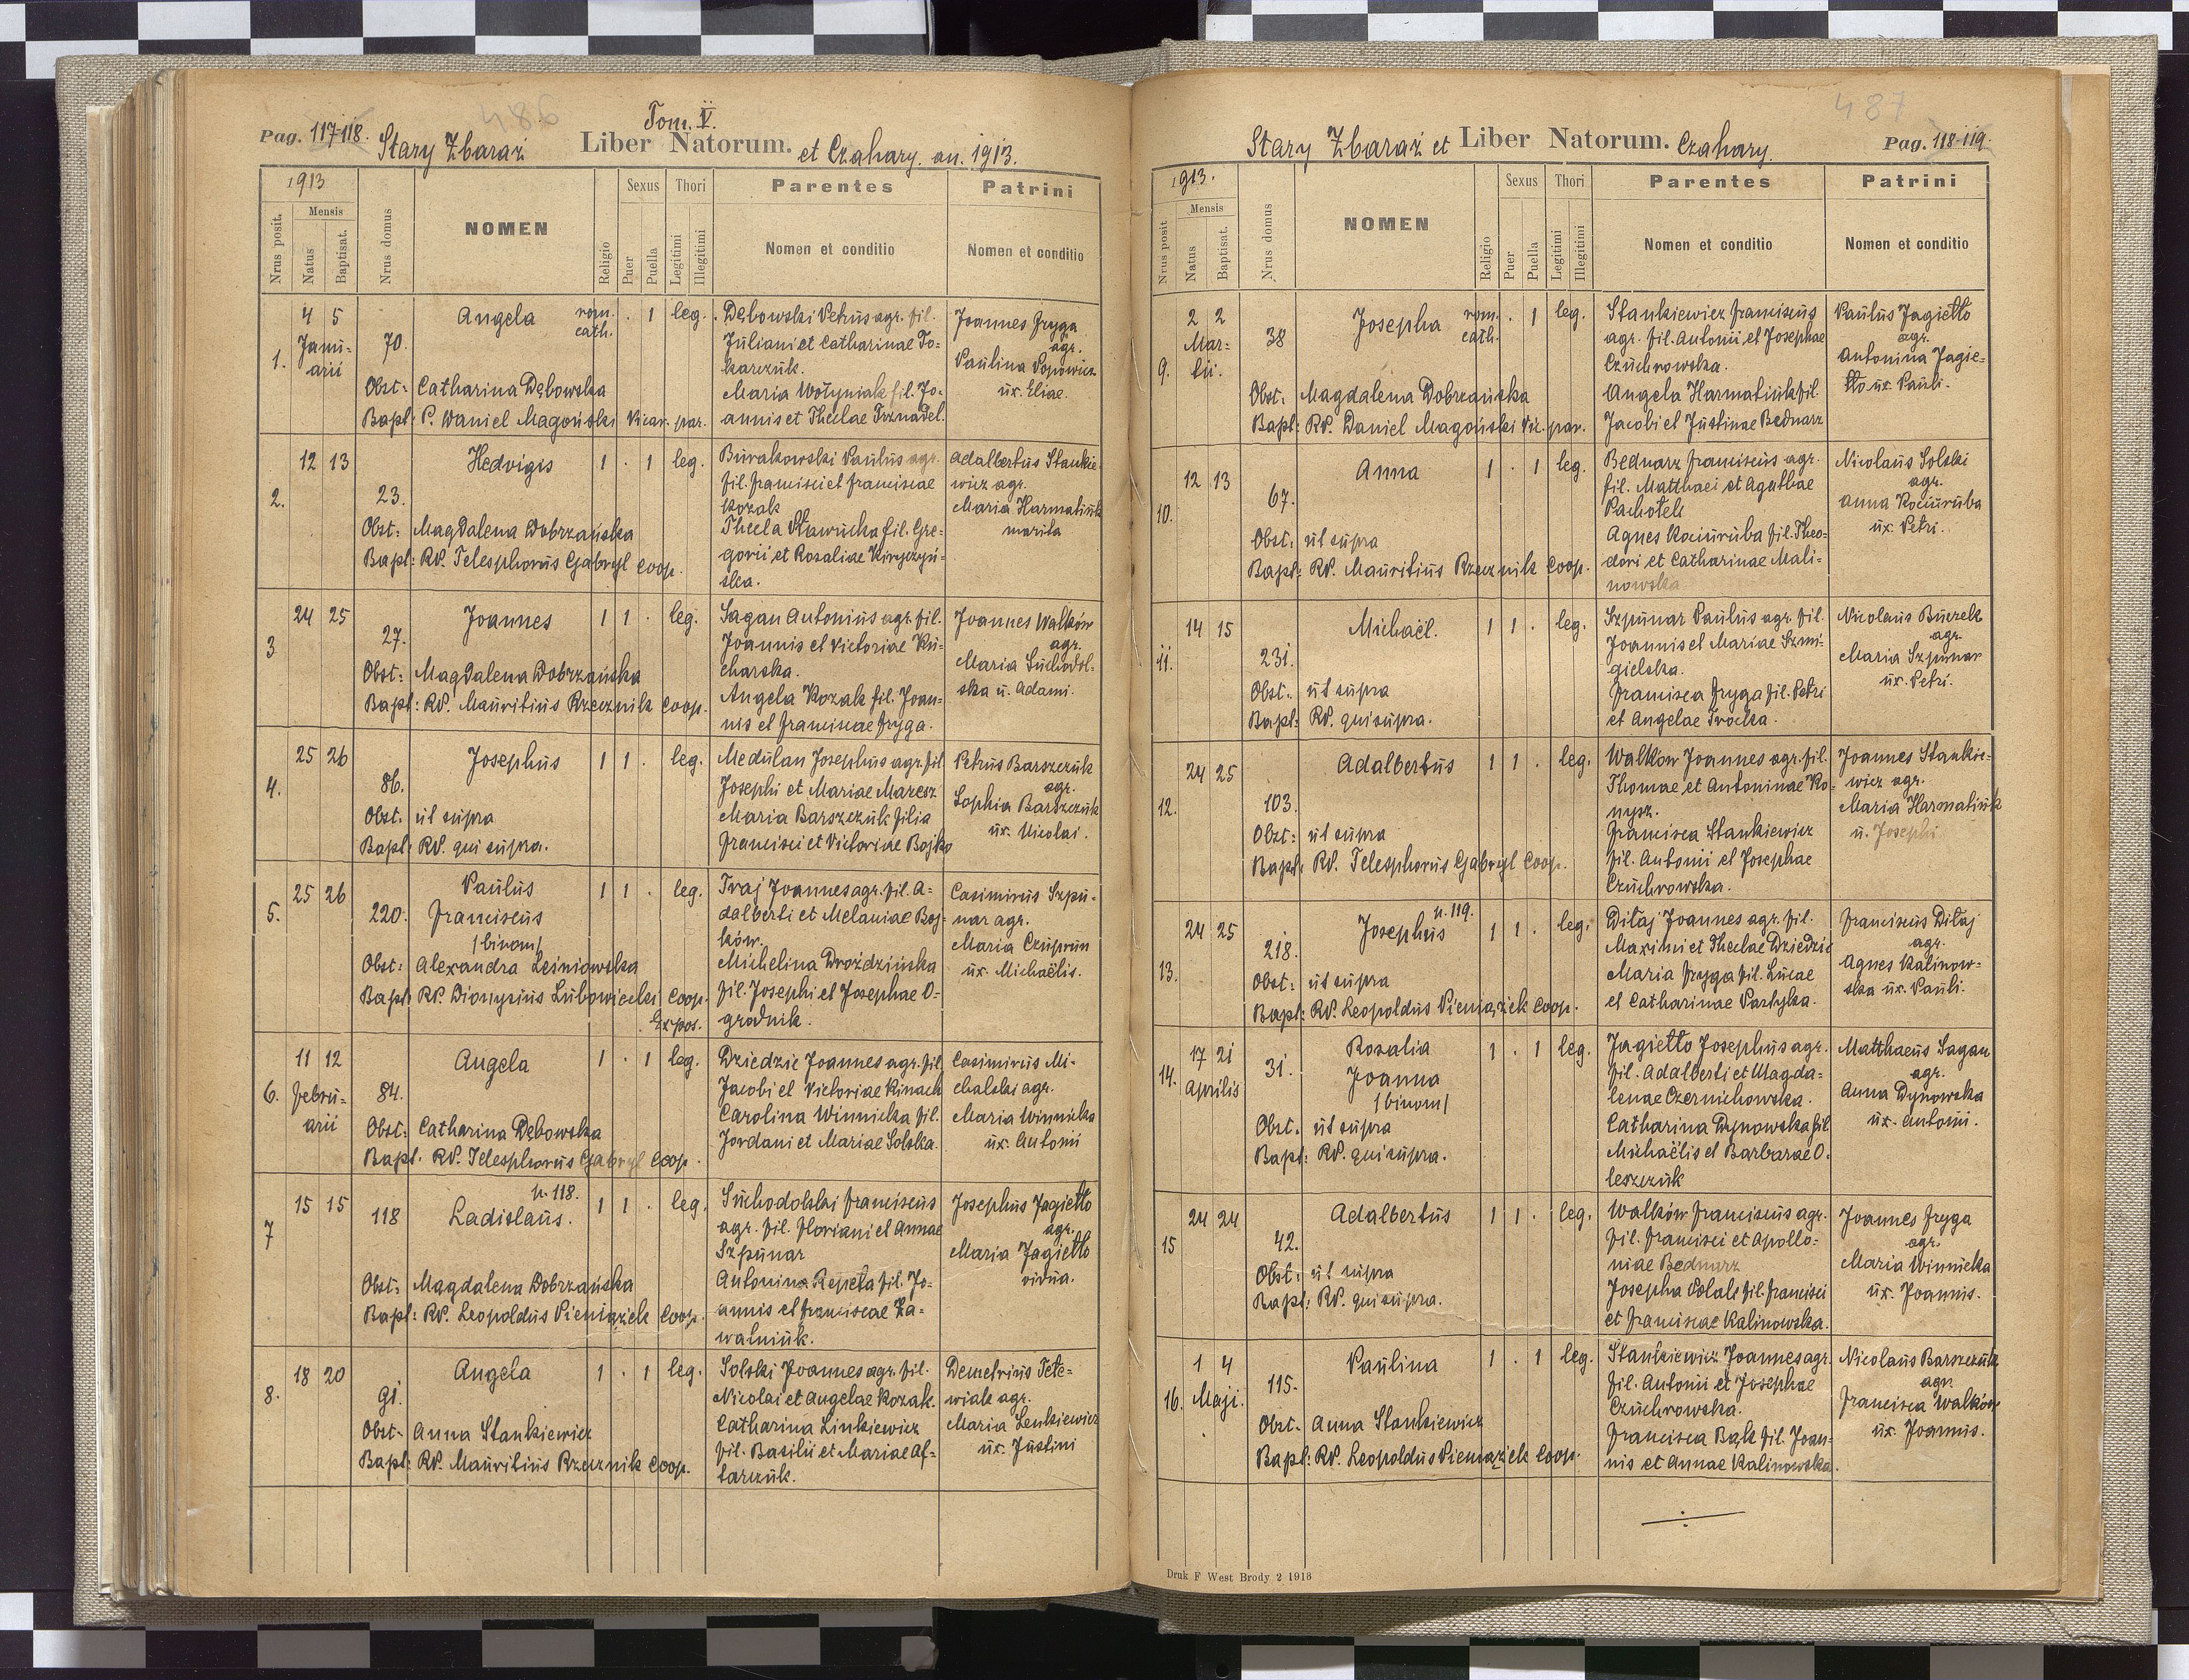 486
Tom. V.
Pag. 117-118.
Stary Zbaraż Liber Natorum. et Czahary. an. 1913.
1913
Nrus posit.
Mensis
Natus
Baptisat.
Nrus domus
NOMEN
Religio
Sexus
Puer
Puella
Thori
Legitimi
Illegitimi
Parentes
Nomen et conditio
Patrini
Nomen et conditio
1.
4 5
Janu-
arii
70.
Angela
rom.
cath.
. 1 leg.
Obst: Catharina Dębowska
Bapt: P. Daniel Magoński Vicar. par.
Dębowski Petrus agr. fil.
Juliani et Catharinae To-
karzuk.
Maria Wołyniak fil. Jo-
annis et Theclae Trznadel.
Joannes Fryga
agr.
Paulina Popowicz
ux. Eliae.
2.
12 13
23.
Hedvigis
1 . 1 leg.
Obst: Magdalena Dobrzańska
Bapt: RP. Telesphorus Gabryl Coop.
Burakowski Paulus agr.
fil. Francisci et Franciscae
Kozak
Thecla Sławucka fil. Gre-
gorii et Rosaliae Kiryczyń-
ska.
Adalbertus Stankie-
wicz agr.
Maria Harmatiuk
marita
3
24 25
27.
Joannes
1 1 . leg.
Obst: Magdalena Dobrzańska
Bapt: RP. Mauritius Rzeznik Coop.
Sagan Antonius agr. fil.
Joannis et Victoriae Ku-
charska.
Angela Kozak fil. Joan-
nis et Franciscae Fryga.
Joannes Walków
agr.
Maria Suchodol-
ska u. Adami.
4.
25 26
86.
Josephus
1 1 . leg.
Obst: ut supra
Bapt: RP. qui supra.
Medulan Josephus agr. fil
Josephi et Mariae Marcsz
Maria Barszczuk filia
Francisci et Victoriae Bojko
Petrus Barszczuk
agr.
Sophia Barszczuk
ux. Nicolai.
5.
25 26
220.
Paulus
Franciscus
/binom/
1 1 . leg.
Obst: Alexandra Leśniowska
Bapt: RP. Dionysius Lubowiecki Coop.
Expos.
Traj Joannes agr. fil. A-
dalberti et Melaniae Boj-
ków.
Michelina Droździńska
fil. Josephi et Josephae O-
grodnik.
Casimirus Szpu-
nar agr.
Maria Czuprun
ux. Michaëlis.
6.
11 12
Febru-
arii
84.
Angela
1 . 1 leg.
Obst: Catharina Dębowska
Bapt: RP. Telesphorus Gabryl Coop.
Dziedzic Joannes agr. fil
Jacobi et Victoriae Kinach
Carolina Winnicka fil.
Jordani et Mariae Solska.
Casimirus Mi-
chalski agr.
Maria Winnicka
ux. Antoni
7
15 15
118
p. 118.
Ladislaus.
1 1 . leg.
Obst: Magdalena Dobrzańska
Bapt: RP. Leopoldus Pieniążek Coop.
Suchodolski Franciscus
agr. fil. Floriani et Annae
Szpunar
Antonina Repeta fil. Jo-
annis et Franciscae Za-
walniuk.
Josephus Jagiełło
agr.
Maria Jagiełło
vidua.
8.
18 20
91.
Angela
1 . 1 leg.
Obst- Anna Stankiewicz
Bapt: RP. Mauritius Rzeznik Coop.
Solski Joannes agr. fil.
Nicolai et Angelae Kozak.
Catharina Linkiewicz
fil. Basilii et Mariae Af-
tarczuk.
Demetrius Tete-
wiak agr.
Maria Lenkiewicz
ux. Justini
487
Stary Zbaraż et Liber Natorum. Czahary.
Pag. 118-119.
1913.
Nrus posit
Mensis
Natus
Baptisat.
Nrus domus
NOMEN
Religio
Sexus
Puer
Puella
Thori
Legitimi
Illegitimi
Parentes
Nomen et conditio
Patrini
Nomen et conditio
9.
2 2
Mar-
tii.
38
Josepha
rom.
cath.
. 1 leg.
Obst: Magdalena Dobrzańska
Bapt: RP. Daniel Magoński Vic. par.
Stankiewicz Franciscus
agr. fil. Antonii et Josephae
Czuchrowska.
Angela Harmatiuk fil.
Jacobi et Justinae Bednarz
Paulus Jagiełło
agr.
Antonina Jagie-
łło ux. Pauli.
10.
12 13
67.
Anna
1 . 1 leg.
Obst: ut supra
Bapt: RP. Mauritius Rzeznik Coop.
Bednarz Franciscus agr.
fil. Matthaei et Agathae
Pachotek
Agnes Kociuruba fil. Theo-
dori et Catharinae Mali-
nowska
Nicolaus Solski
agr.
Anna Kociuruba
ux. Petri.
11.
14 15
231.
Michaël.
1 1 . leg.
Obst.. ut supra
Bapt: RP. qui supra.
Szpunar Paulus agr. fil.
Joannis et Mariae Szmi-
gielska.
Francisca Fryga fil. Petri
et Angelae Trocka.
Nicolaus Buczek
agr.
Maria Szpunar
ux. Petri.
12.
24 25
103.
Adalbertus
1 1 . leg.
Obst: ut supra
Bapt: RP. Telesphorus Gabryl Coop.
Walków Joannes agr. fil.
Thomae et Antoninae Ko-
nysz.
Francisca Stankiewicz
fil. Antonii et Josephae
Czuchrowska.
Joannes Stankie-
wicz agr.
Maria Harmatiuk
u. Josephi
13.
24 25
218.
p. 119.
Josephus
1 1 . leg.
Obst: ut supra
Bapt: RP. Leopoldus Pieniążek Coop.
Ditaj Joannes agr. fil.
Maximi et Theclae Dziedzic
Maria Fryga fil. Lucae
et Catharinae Partyka.
Franciscus Ditaj
agr.
Agnes Kalinow-
ska ux. Pauli.
14.
17 21
Aprilis
31.
Rosalia
Joanna
/binom/
1 . 1 leg.
Obst. ut supra
Bapt: RP. qui supra.
Jagiełło Josephus agr.
fil. Adalberti et Magda-
lenae Czernichowska.
Catharina Dynowska fil
Michaëlis et Barbarae O-
leszczuk
Matthaeus Sagan
agr.
Anna Dynowska
ux. Antoni.
15
24 24
42.
Adalbertus
1 1 . leg.
Obst: ut supra
Bapt: RP. qui supra.
Walków Franciscus agr.
fil. Francisci et Apollo-
niae Bednarz
Josepha Polak fil. Francisci
et Franciscae Kalinowska.
Joannes Fryga
agr.
Maria Winnicka
ux. Joannis.
16.
1 4
Maji.
115.
Paulina
1 . 1 leg.
Obst. Anna Stankiewicz
Bapt: RP. Leopoldus Pieniążek Coop.
Stankiewicz Joannes agr.
fil. Antonii et Josephae
Czuchrowska.
Francisca Bąk fil. Joan-
nis et Annae Kalinowska.
Nicolaus Barszczuk
agr.
Francisca Walków
ux. Joannis.
Druk F West Brody 2 1913